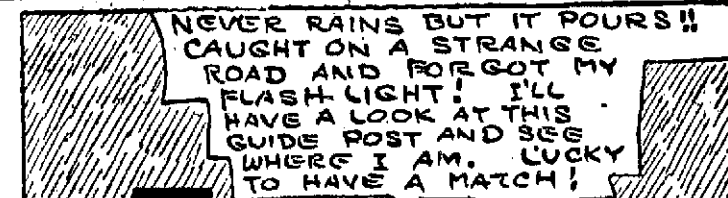 NEVER RAINS BUT IT POURS!!
CAUGHT ON A STRANGE
ROAD AND FORGOT MY
FLASH-LIGHT! I'LL
HAVE A LOOK AT THIS
GUIDE POST AND SEE
WHERE I AM. LUCKY
TO HAVE A MATCH!